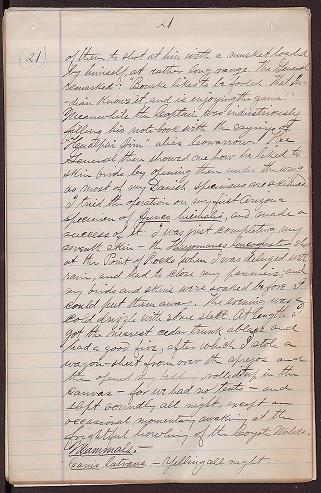 21
(21)
of them to shoot at him with a musket loaded
by himself, at rather long range. The General
remarked: "Bourke likes to be fooled. That In-
dian knows it and is enjoying the game."
Meanwhile the Captain was industriously
filling his note book with the sayings of
Jim" alias The
General then showed me how he liked to
skin birds by opening them under the wing
as most of my Danish specimens are skinned.
I tried the operation on my first Arizona
specimen of Junco and made a
success of it. I was just completing my
seventh skin - the
at the Point of Rocks, when I was deluged with
rain, and had to close my panniers; and
my birds and skins were soaked before I
could put them away. The evening was a
cold drizzle with some sleet. At length I
got the nearest cedar trunk ablaze and
had a good fire, after which I stole a
wagon-sheet from over the and
then opened my bedding, rolled up in the
canvas - for we had no tents - and
slept soundly all night, except an
occasional momentary awaking at the
frightful howling of the Coyote Wolves.
Mammals.-
Canis latrans. - Yelling all night.